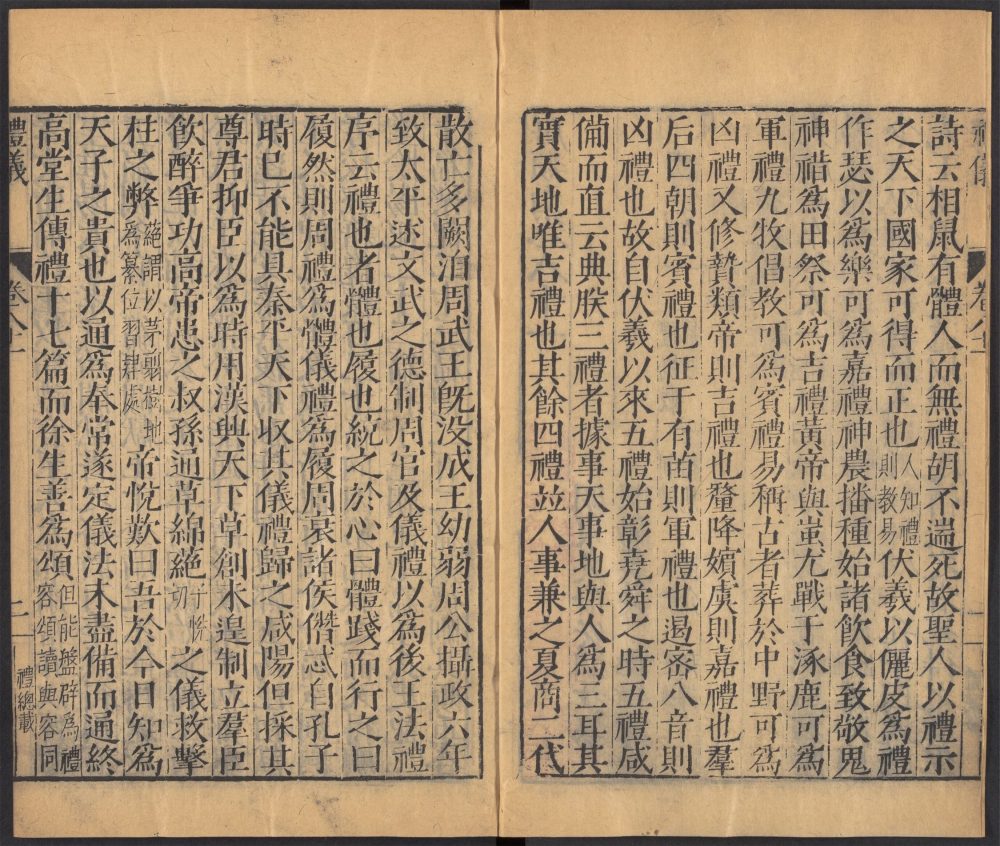 詩云相鼠有體人而無禮胡不遄死故聖人以禮示
之天下國家可得而正也人知禮則教易伏羲以儷皮爲禮
作瑟以爲樂可爲嘉禮神農播種始諸飲食致敬鬼
神䄍爲田祭可爲吉禮黃帝與蚩尤戰于涿鹿可爲
軍禮九牧倡教可爲賓禮易稱古者葬於中野可爲
凶禮又修贄類帝則吉禮也釐降嬪虞則嘉禮也羣
后四朝則賓禮也征于有苗則軍禮也遏密八音則
凶禮也故自伏羲以來五禮始彰堯舜之時五禮咸
備而直云典朕三禮者據事天事地與人爲三耳其
實天地唯吉禮也其餘四禮並人事兼之夏商二代
散亡多闕洎周武王既没成王幼弱周公攝政六年
致太平述文武之德制周官及儀禮以爲後王法禮
序云禮也者體也履也統之於心曰體踐而行之曰
履然則周禮爲體儀禮爲履周衰諸侯僭忒自孔子
時已不能具秦平天下收其儀禮歸之咸陽但採其
尊君抑臣以爲時用漢興天下草創未遑制立羣臣
飲醉爭功高帝患之叔孫通草綿絕子悅切之儀救擊
柱之弊絕謂以茅剪樹地爲纂位習肄處帝悅歎曰吾於今日知爲
天子之貴也以通爲奉常遂定儀法未盡備而通終
高堂生傳禮十七篇而徐生善爲頌但能盤辟爲禮容頌讀與容同
禮儀
卷八十一
二
禮總載